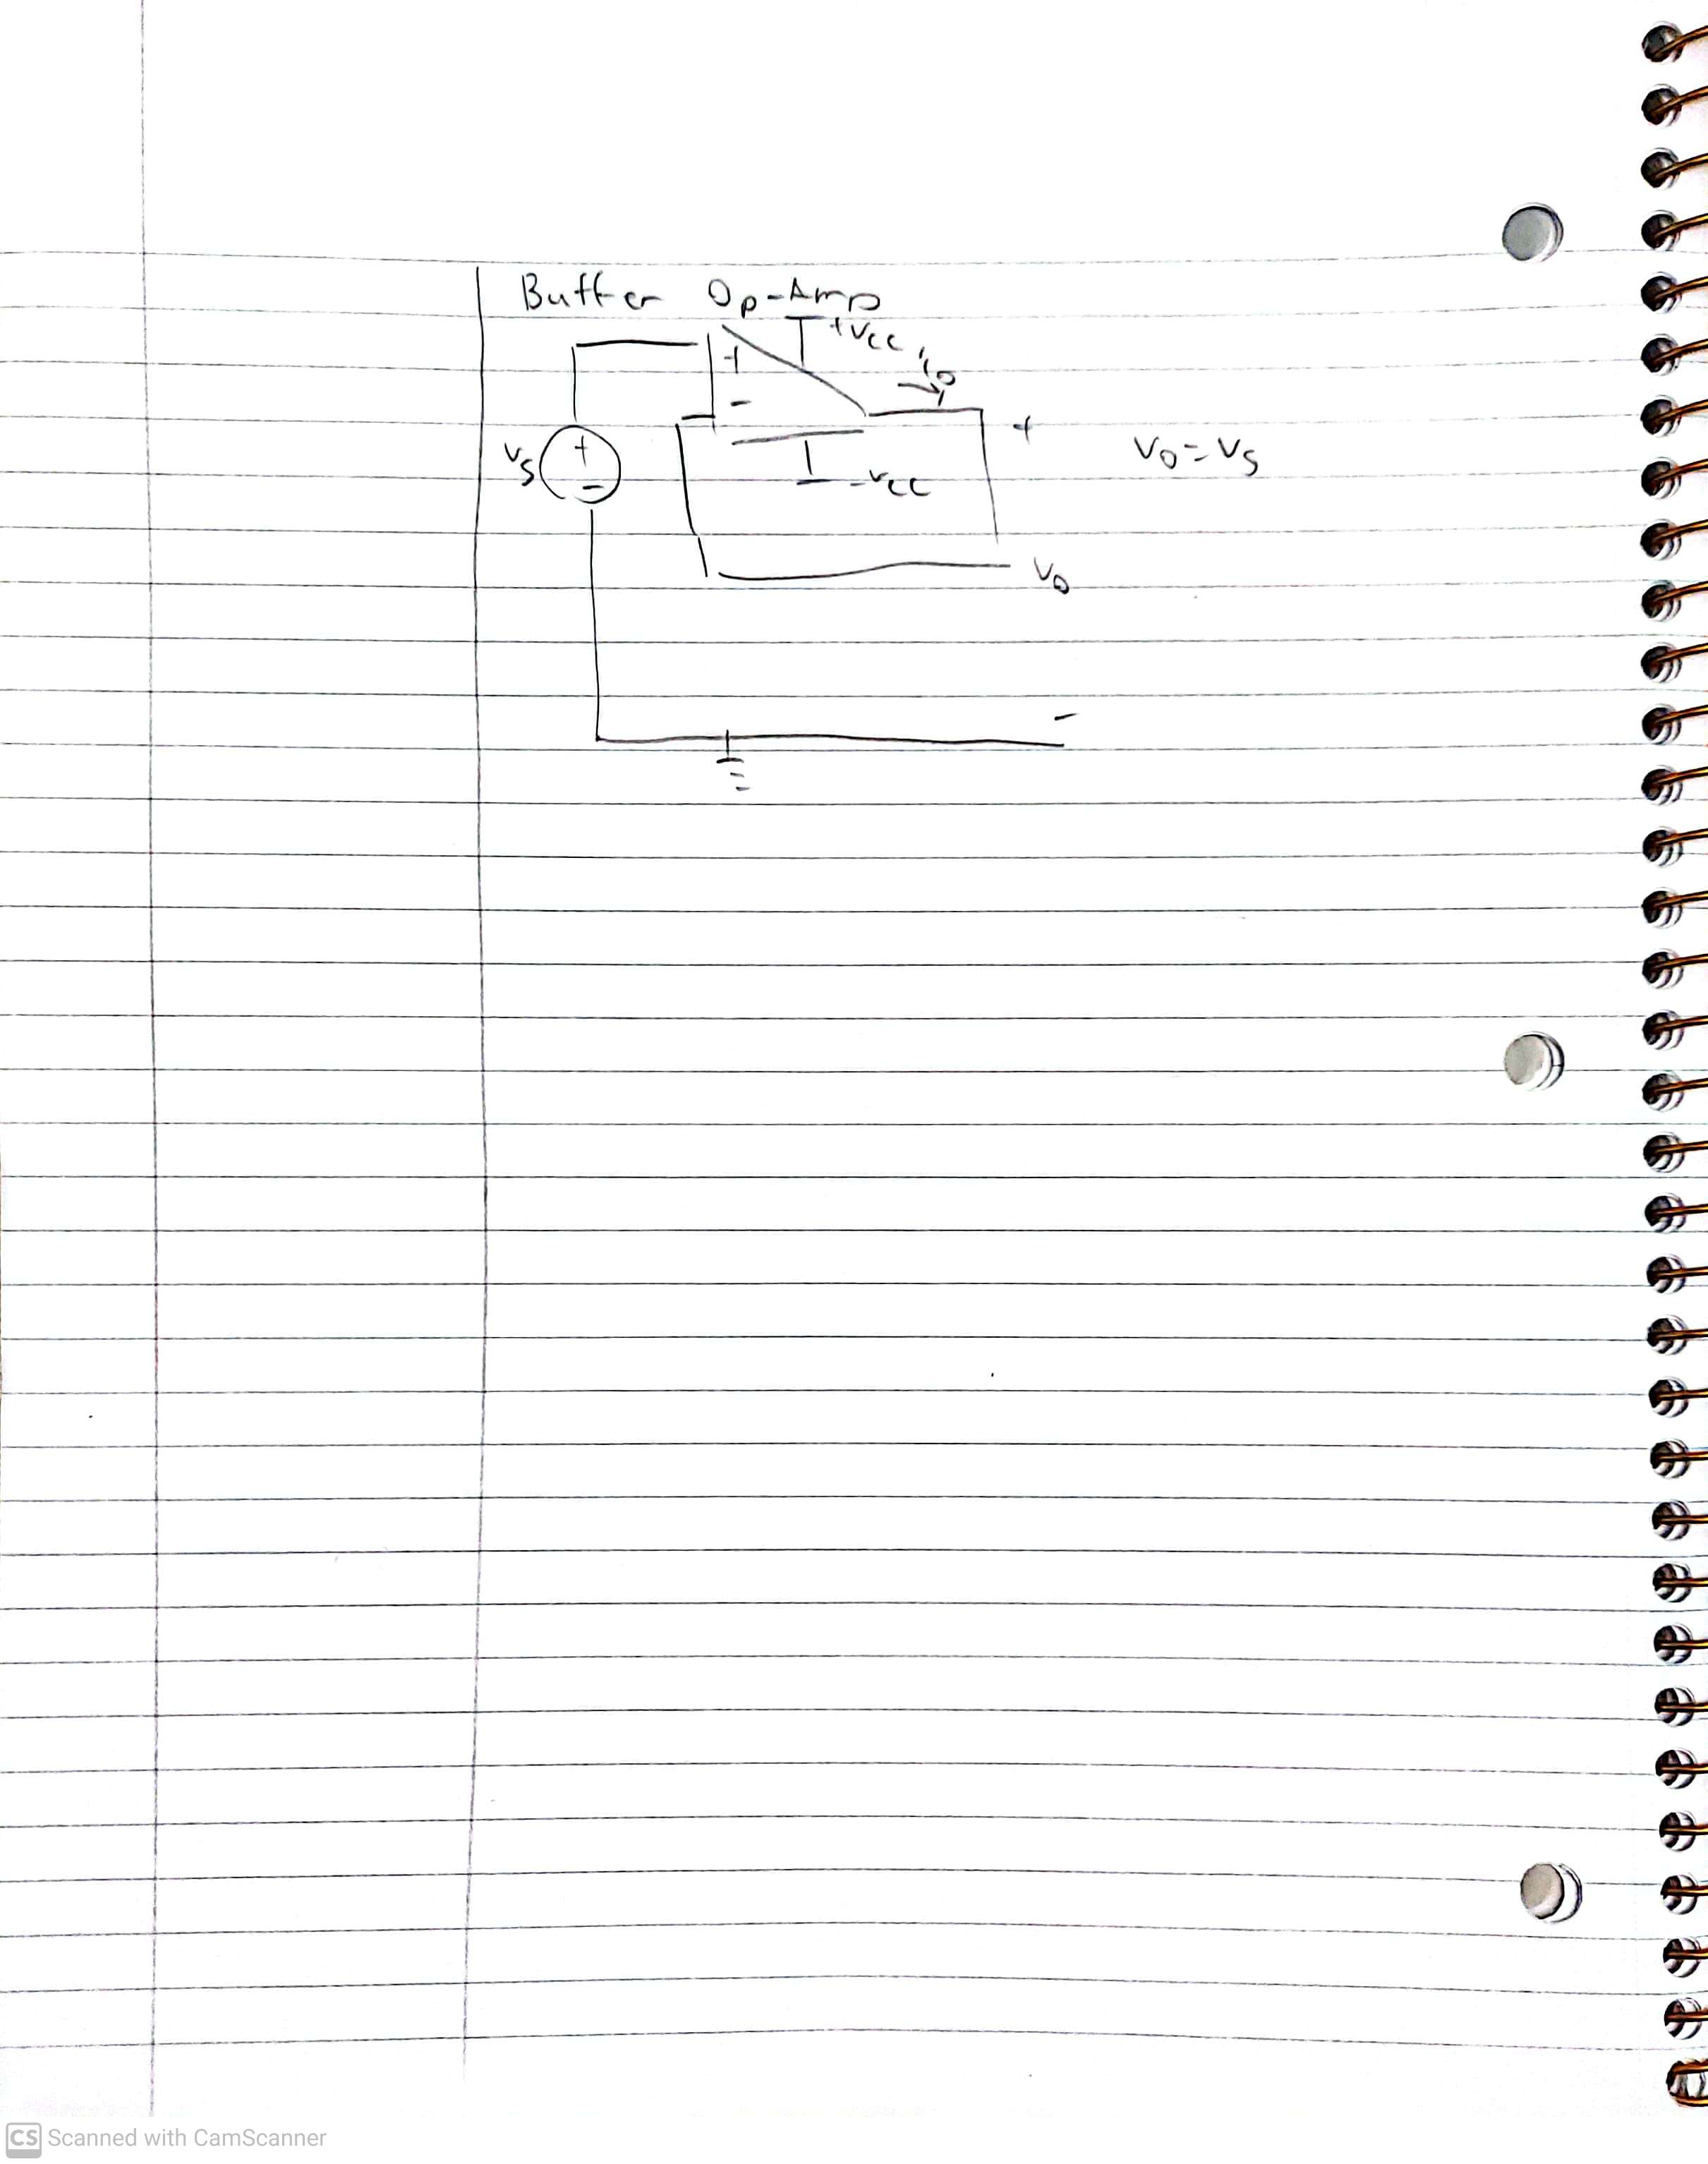 Buffer Op-Amp
+
+Vcc
io
-
+
Vs
+
-
-Vcc
Vo = Vs
Vo
-
CS Scanned with CamScanner